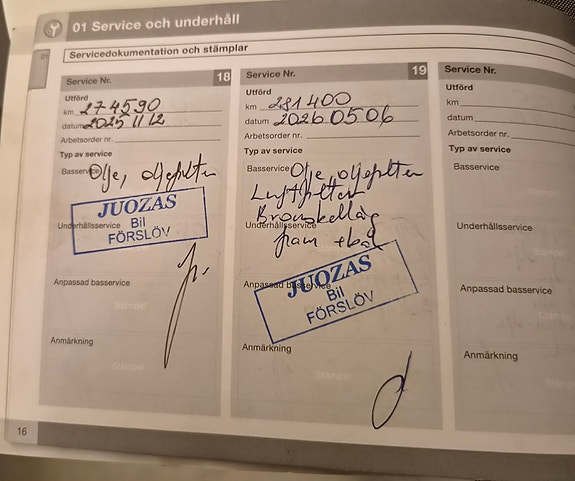 01 Service och underhåll
01
Servicedokumentation och stämplar
Service Nr. 18
Utförd
km 274590
datum 20251112
Arbetsorder nr.
Typ av service
Basservice Olje, oljefilter
Underhållsservice
JUOZAS
Bil
FÖRSLÖV
Anpassad basservice
Stämpel
Anmärkning
Stämpel
16
Service Nr. 19
Utförd
km 281400
datum 20260506
Arbetsorder nr.
Typ av service
Basservice Olje, oljefilter
Luftfilter
Underhållsservice
fram
Anpassad basservice
JUOZAS
Bil
FÖRSLÖV
Anmärkning
Stämpel
Service Nr.
Utförd
km
datum
Arbetsorder nr.
Typ av service
Basservice
Stämpel
Underhållsservice
Stämpel
Anpassad basservice
Stämpel
Anmärkning
Stämpel